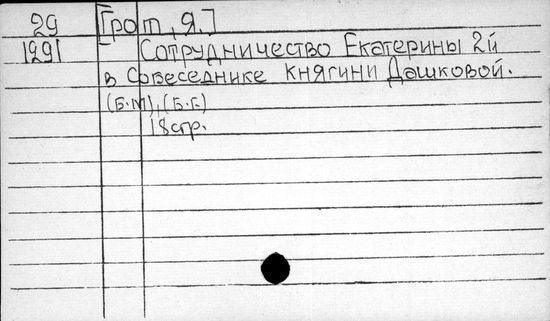 29 [Грот, Я.]
1291 Сотрудничество Екатерины 2й
в Собеседнике княгини Дашковой.
(Б.М), (Б.Г.)
18стр.